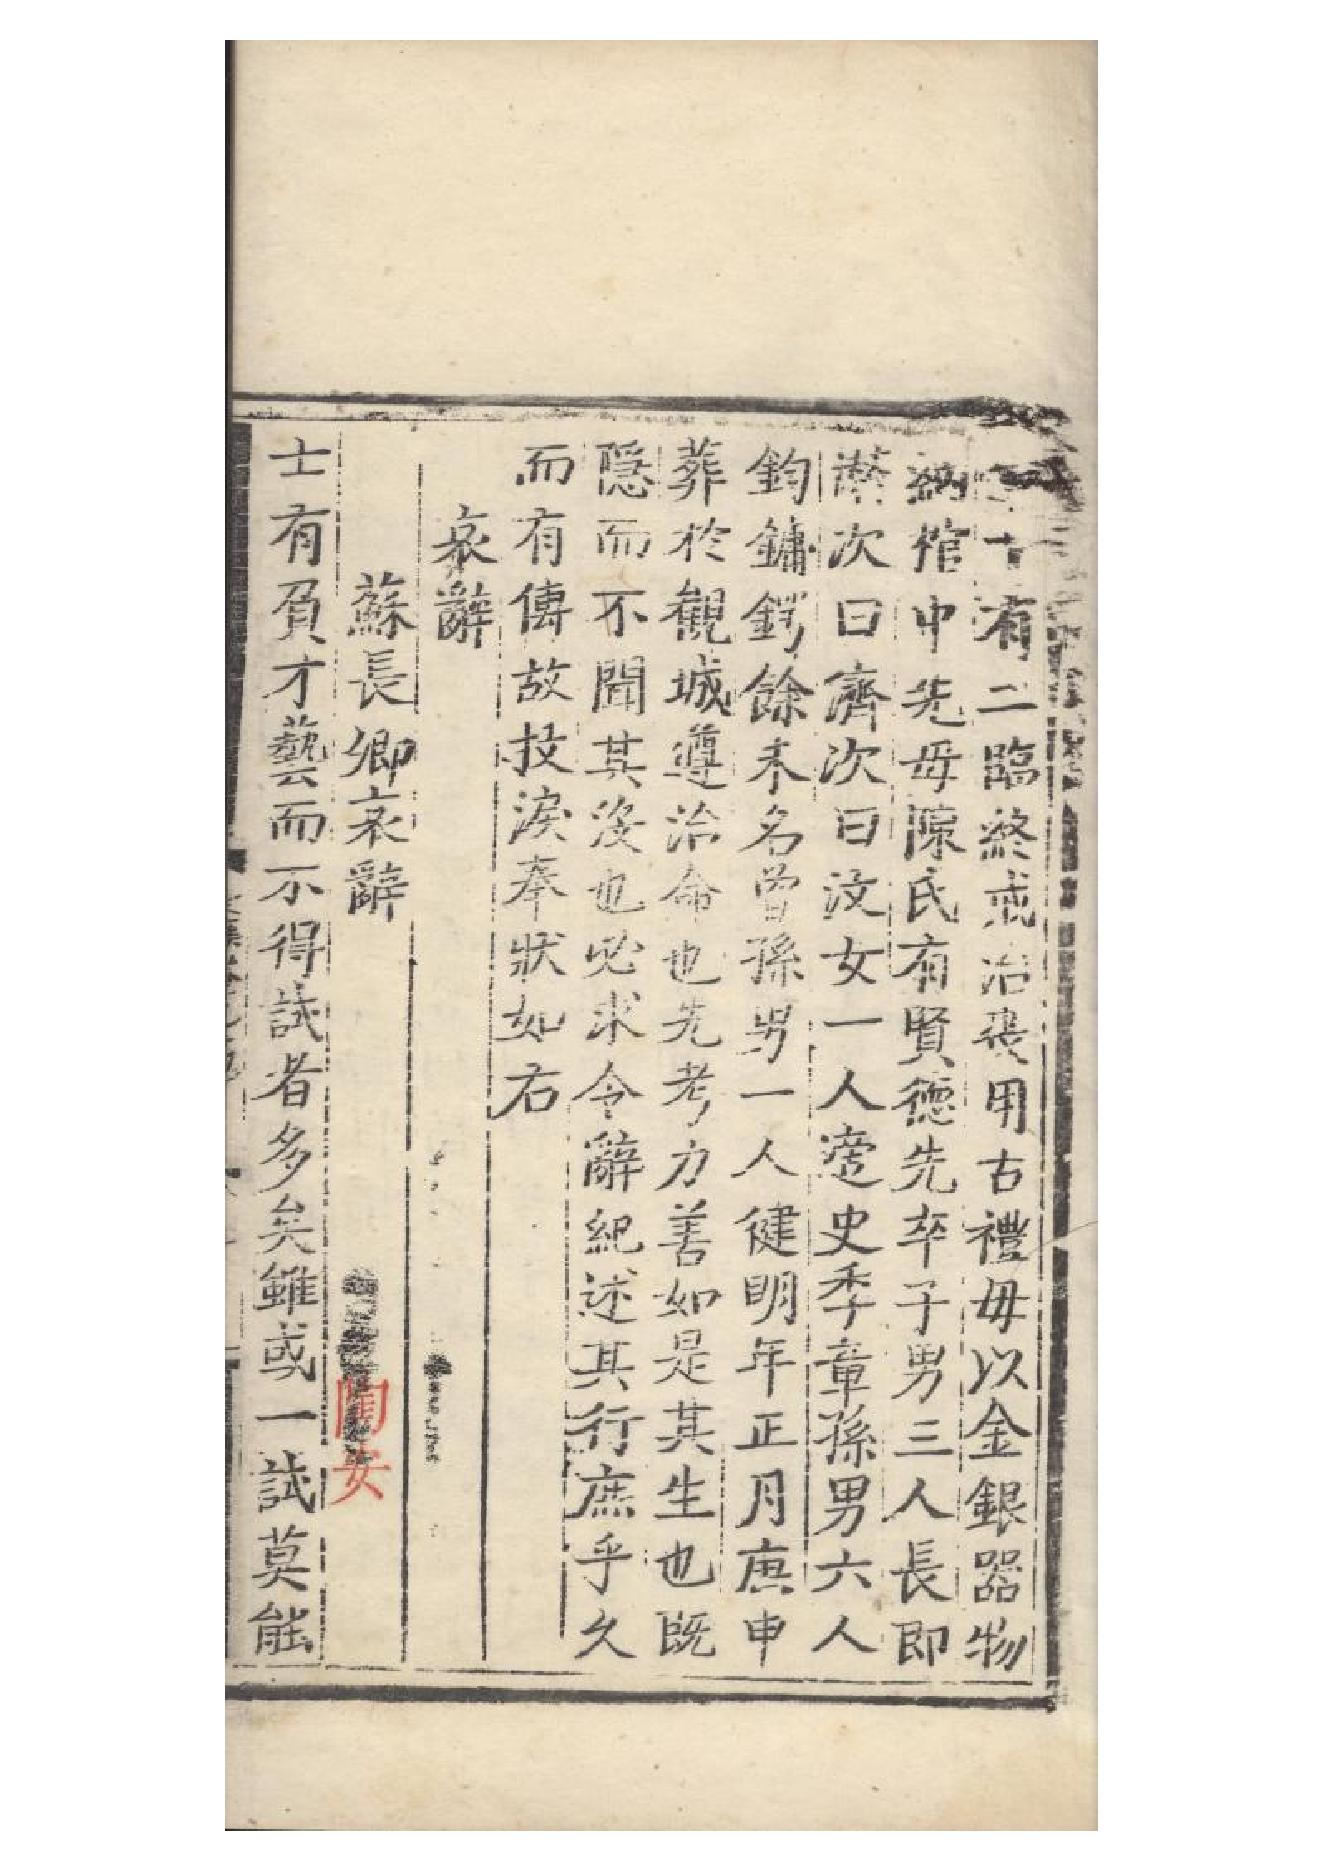 十有二臨終戒治喪用古禮毋以金銀器物
納棺中先母陳氏有賢德先卒子男三人長即
濟次曰濟次曰汶女一人適史季章孫男六人
鈞鏞鍔餘未名曾孫男一人健明年正月庚申
葬於觀城遵治命也先考力善如是其生也既
隱而不聞其沒也必求令辭紀述其行庶乎久
而有傳故抆淚奉狀如右
哀辭
蘇長卿哀辭
陶安
士有負才藝而不得試者多矣雖或一試莫能